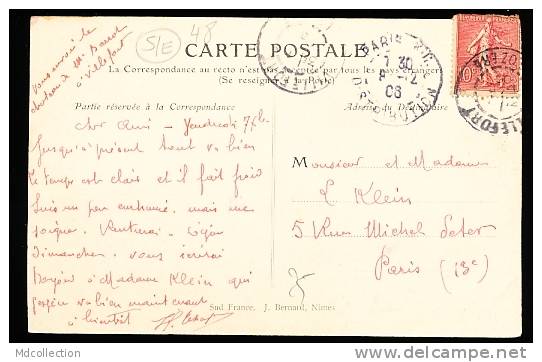 S/E
48
Vous avez le
château de Mr
à Villefort
CARTE POSTALE
La Correspondance au recto n'est pas acceptée par tous les pays étrangers
(Se renseigner à la Poste)
Partie réservée à la Correspondance
Adresse du Destinataire
PARIS
30
8-12
06
VILLEFORT
LOZERE
10
Cher Ami – Vendredi 7 Xbre
Jusqu'à présent tout va bien
le temps est clair et il fait froid
suis un peu enrhumé, mais me
soigne. Rentrerai
dimanche. vous écrirai
Bonjour à Madame Klein qui
j'espère va bien maintenant
à bientôt
Monsieur et Madame
L. Klein
5 Rue Michel Peter
Paris (13e)
Sud France, J. Bernard, Nimes
Mdcollection
http://mdcollection.delcampe.net